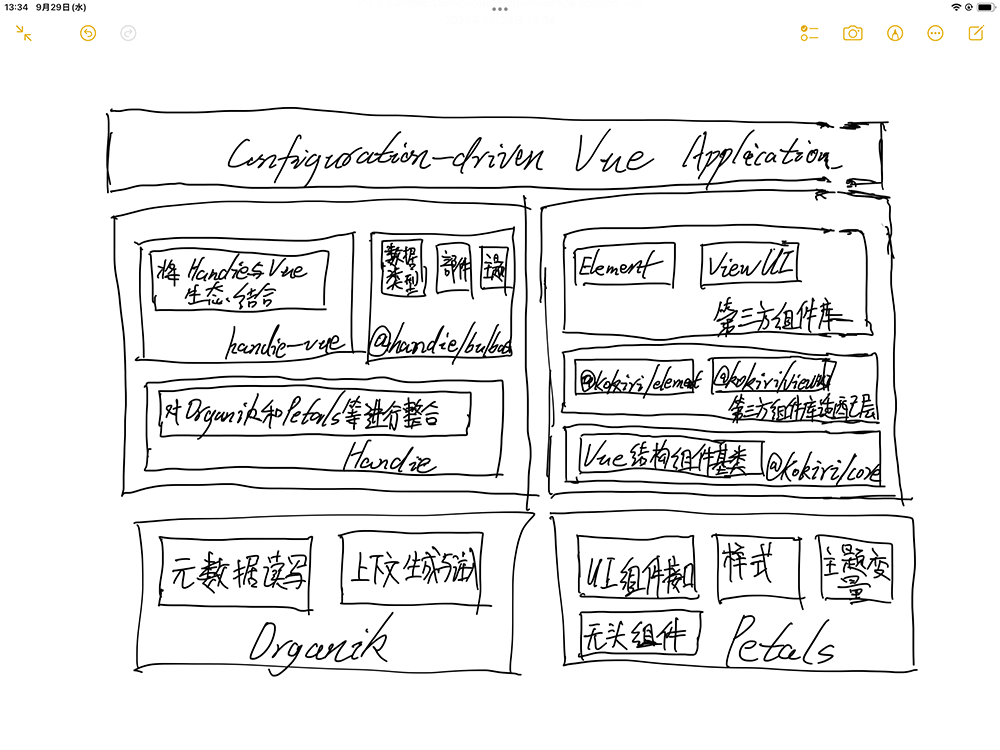 13:34 9月29日(水)
Configuration-driven Vue Application
将Handie与Vue
生态结合
handie-vue
数据
类型
部件
主题
@handie/bulbas
对Organik和Petals等进行整合
Handie
Element
ViewUI
第三方组件库
@kokiri/element
@kokiri/viewui
第三方组件库适配层
Vue结构组件基类
@kokiri/core
元数据读写
上下文生成与注入
Organik
UI组件接口
样式
主题变
量
无头组件
Petals